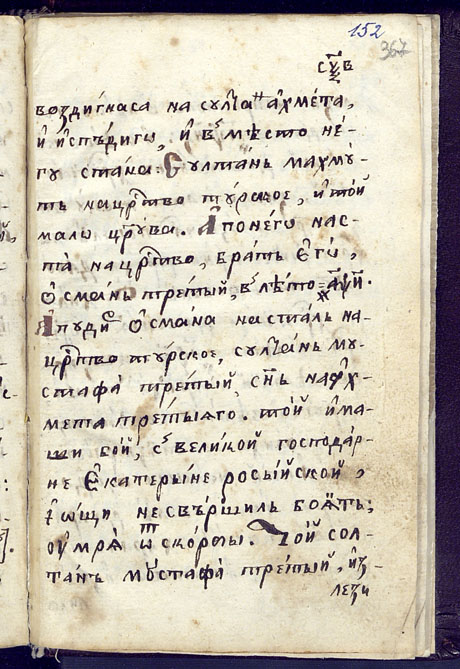 152
367
воздигнаса на султан ахмета,
и испъдиги, и въ место не-
гу стана. Султань махму-
ть на црство турское, и той
малу црува. А по него нас-
та на црство, брать егѡ,
Ѻсмань третый, въ лѣто
А пуди Ѻсмана насталь на
црство турское, султань му-
стафа третый, снь на ах-
мета третыяго. той има-
ши бой, с великой господар-
не Екатерыне росыйской,
і ѡщи не свършиль боять;
оумря ѿ скорбы. Той сол-
тань мустафа третый, из-
лези